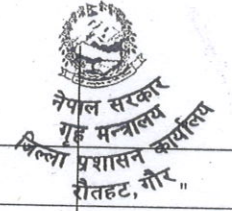 नेपाल सरकार
गृह मन्त्रालय
जिल्ला प्रशासन कार्यालय
रौतहट, गौर "